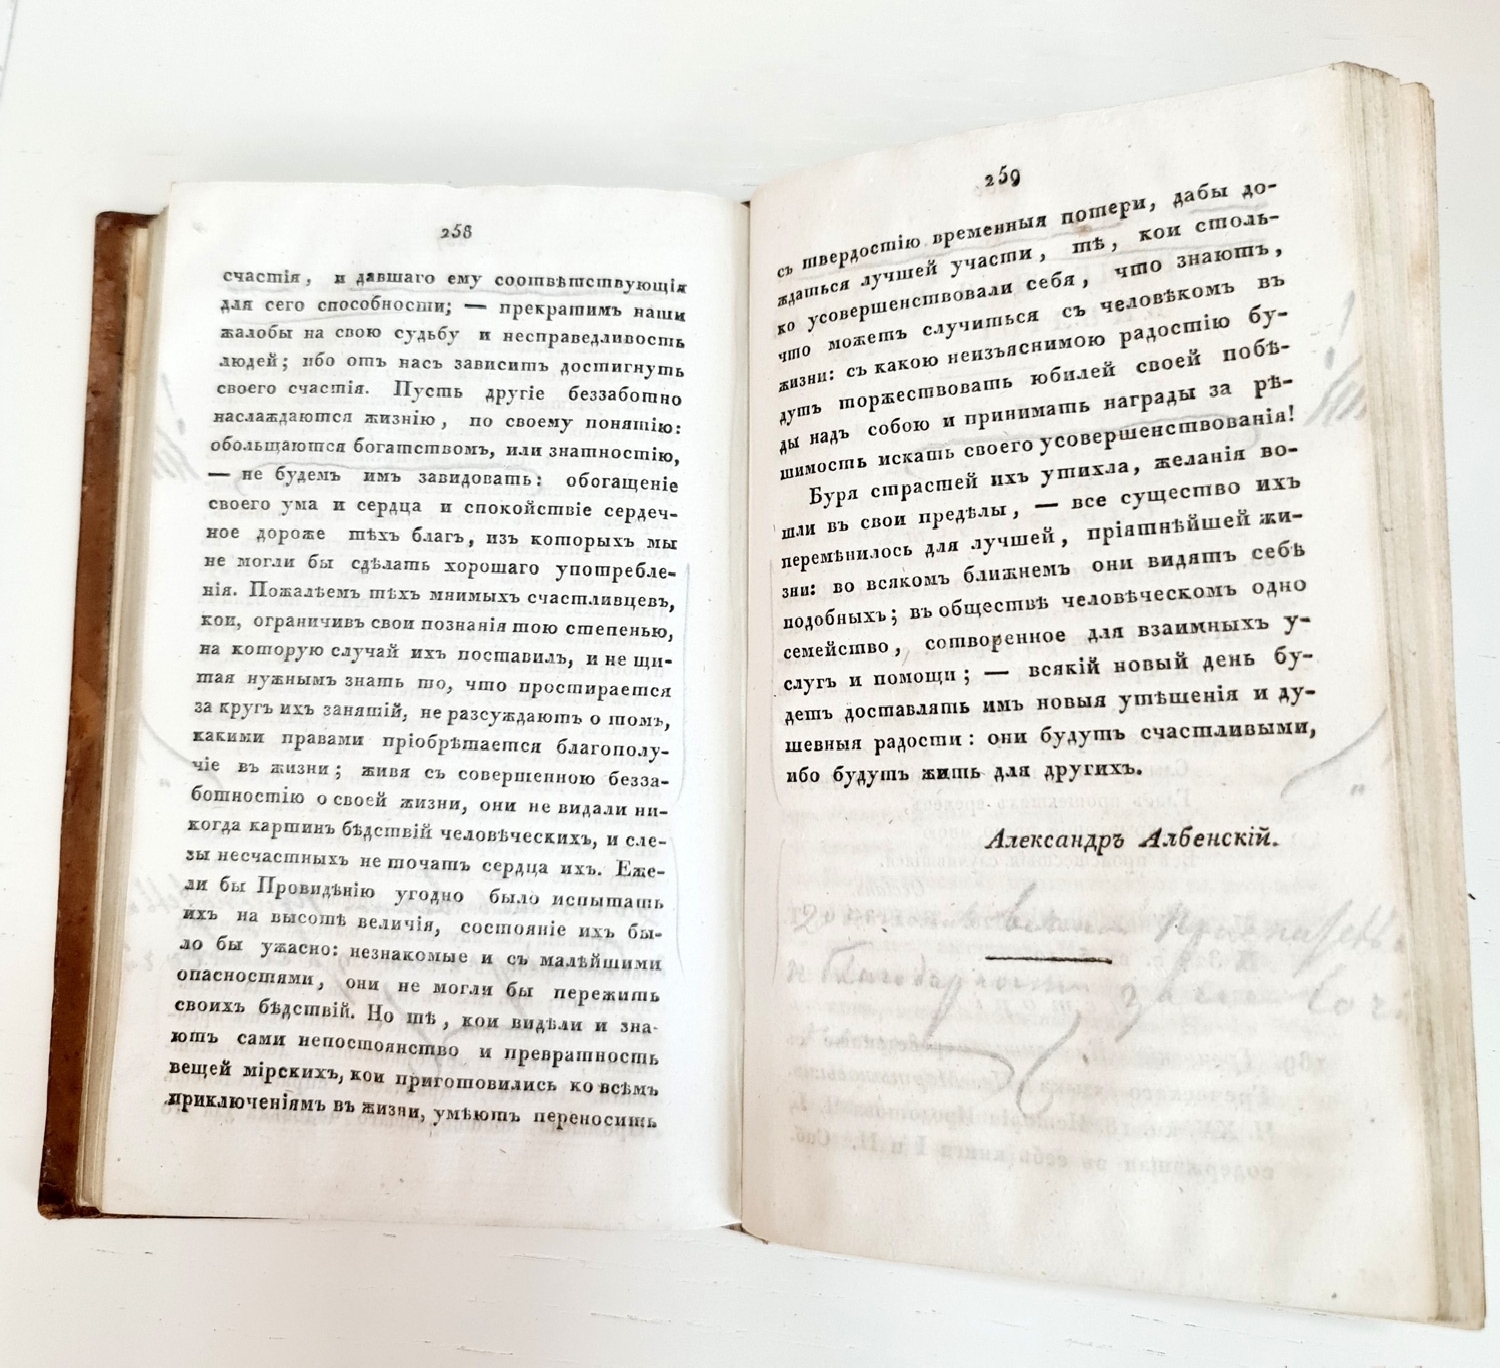 258
счастія, и давшаго ему соотвѣтствующія
для сего способности; — прекратимъ наши
жалобы на свою судьбу и несправедливость
людей; ибо отъ насъ зависитъ достигнуть
своего счастія. Пусть другіе беззаботно
наслаждаются жизнію, по своему понятію:
обольщаются богатствомъ, или знатностію,
— не будемъ имъ завидовать: обогащеніе
своего ума и сердца и спокойствіе сердеч-
ное дороже тѣхъ благъ, изъ которыхъ мы
не могли бы сдѣлать хорошаго употребле-
нія. Пожалѣемъ тѣхъ мнимыхъ счастливцевъ,
кои, ограничивъ свои познанія тою степенью,
на которую случай ихъ поставилъ, и не щи-
тая нужнымъ знать то, что простирается
за кругъ ихъ занятій, не разсуждаютъ о томъ,
какими правами пріобрѣтается благополу-
чіе въ жизни; живя съ совершенною безза-
ботностію о своей жизни, они не видали ни-
когда картинъ бѣдствій человѣческихъ, и сле-
зы несчастныхъ не точатъ сердца ихъ. Еже-
ли бы Провидѣнію угодно было испытать
ихъ на высотѣ величія, состояніе ихъ бы-
ло бы ужасно: незнакомые и съ малѣйшими
опасностями, они не могли бы пережить
своихъ бѣдствій. Но тѣ, кои видѣли и зна-
ютъ сами непостоянство и превратность
вещей мірскихъ, кои приготовились ко всѣмъ
приключеніямъ въ жизни, умѣютъ переносить
259
съ твердостію временныя потери, дабы до-
ждаться лучшей участи, тѣ, кои столь-
ко усовершенствовали себя, что знаютъ,
что можетъ случиться съ человѣкомъ въ
жизни: съ какою неизъяснимою радостію бу-
дутъ торжествовать юбилей своей побѣ-
ды надъ собою и принимать награды за рѣ-
шимость искать своего усовершенствованія!
Буря страстей ихъ утихла, желанія во-
шли въ свои предѣлы, — все существо ихъ
перемѣнилось для лучшей, пріятнѣйшей жи-
зни: во всякомъ ближнемъ они видятъ себѣ
подобныхъ; въ обществѣ человѣческомъ одно
семейство, сотворенное для взаимныхъ у-
слугъ и помощи; — всякій новый день бу-
детъ доставлять имъ новыя утѣшенія и ду-
шевныя радости: они будутъ счастливыми,
ибо будутъ жить для другихъ.
Александръ Албенскій.